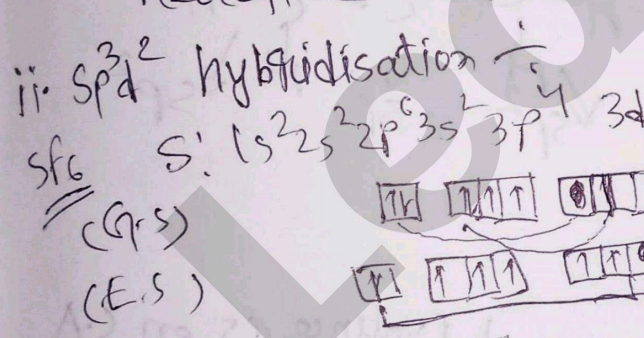 ii. Sp³d² hybridisation
SF6 S: 1s² 2s² 2p⁶ 3s² 3p⁴ 3d
(G.S)
(E.S)